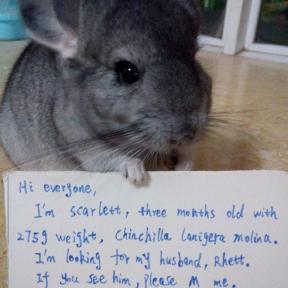 Hi everyone,
I'm scarlett, three months old with
275g weight, Chinchilla lanigera molina.
I'm looking for my husband, Rhett.
If you see him, please M me.